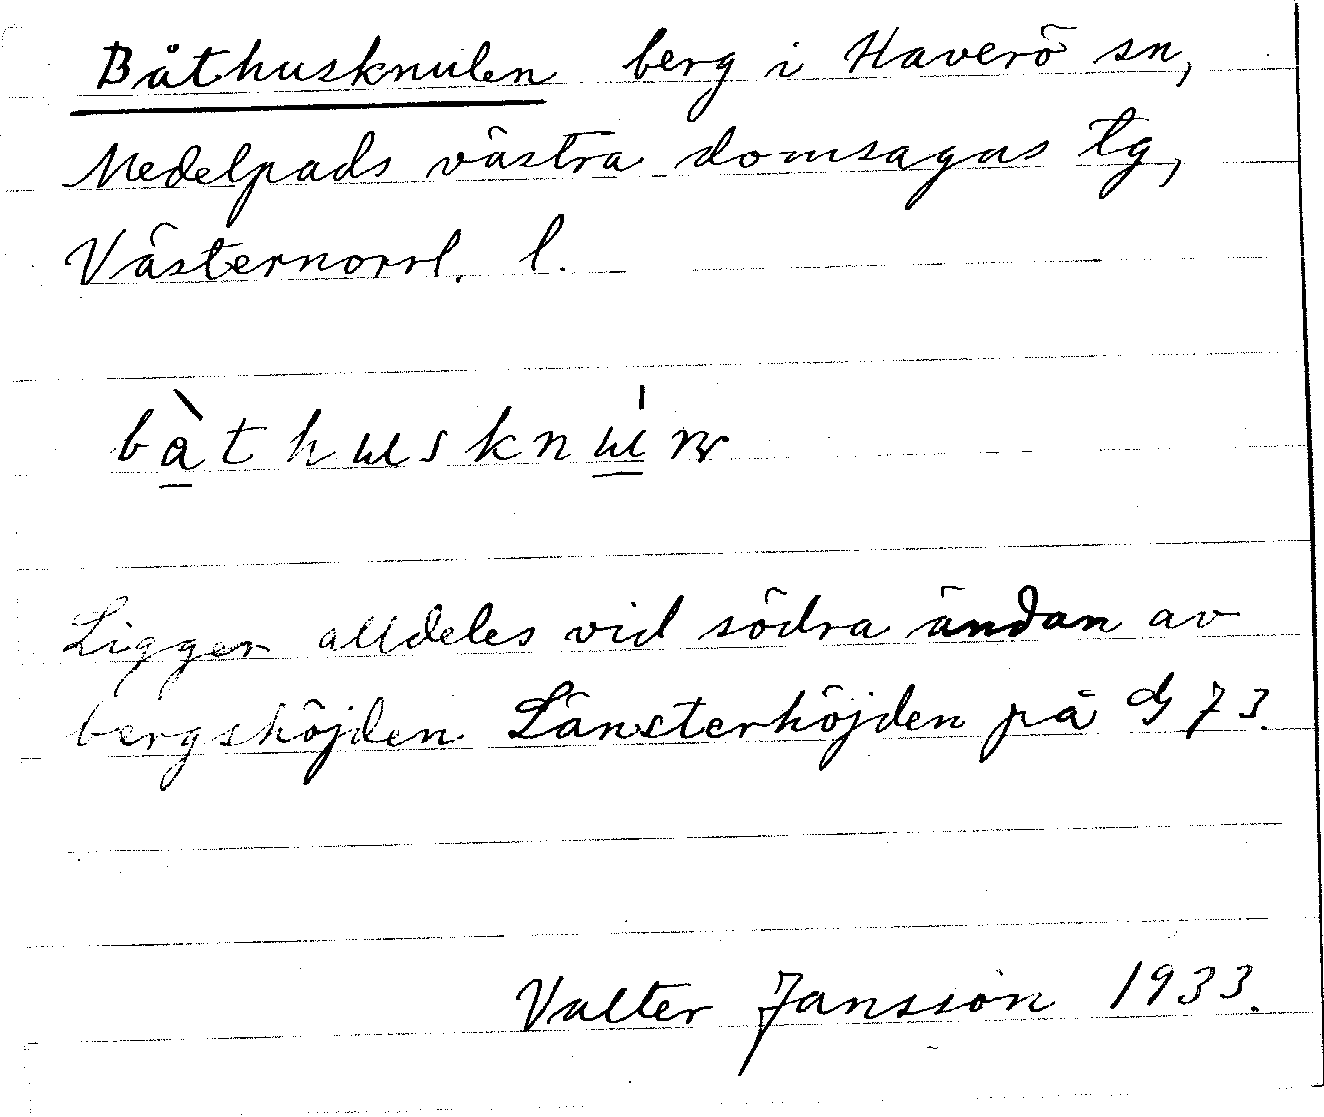 Båthusknulen berg i Haverö sn,
Medelpads västra domsagas tg,
Västernorrl. l.
bàthusknúɯ
Ligger alldeles vid södra ändan av
bergshöjden Länsterhöjden på G 73.
Valter Jansson 1933.